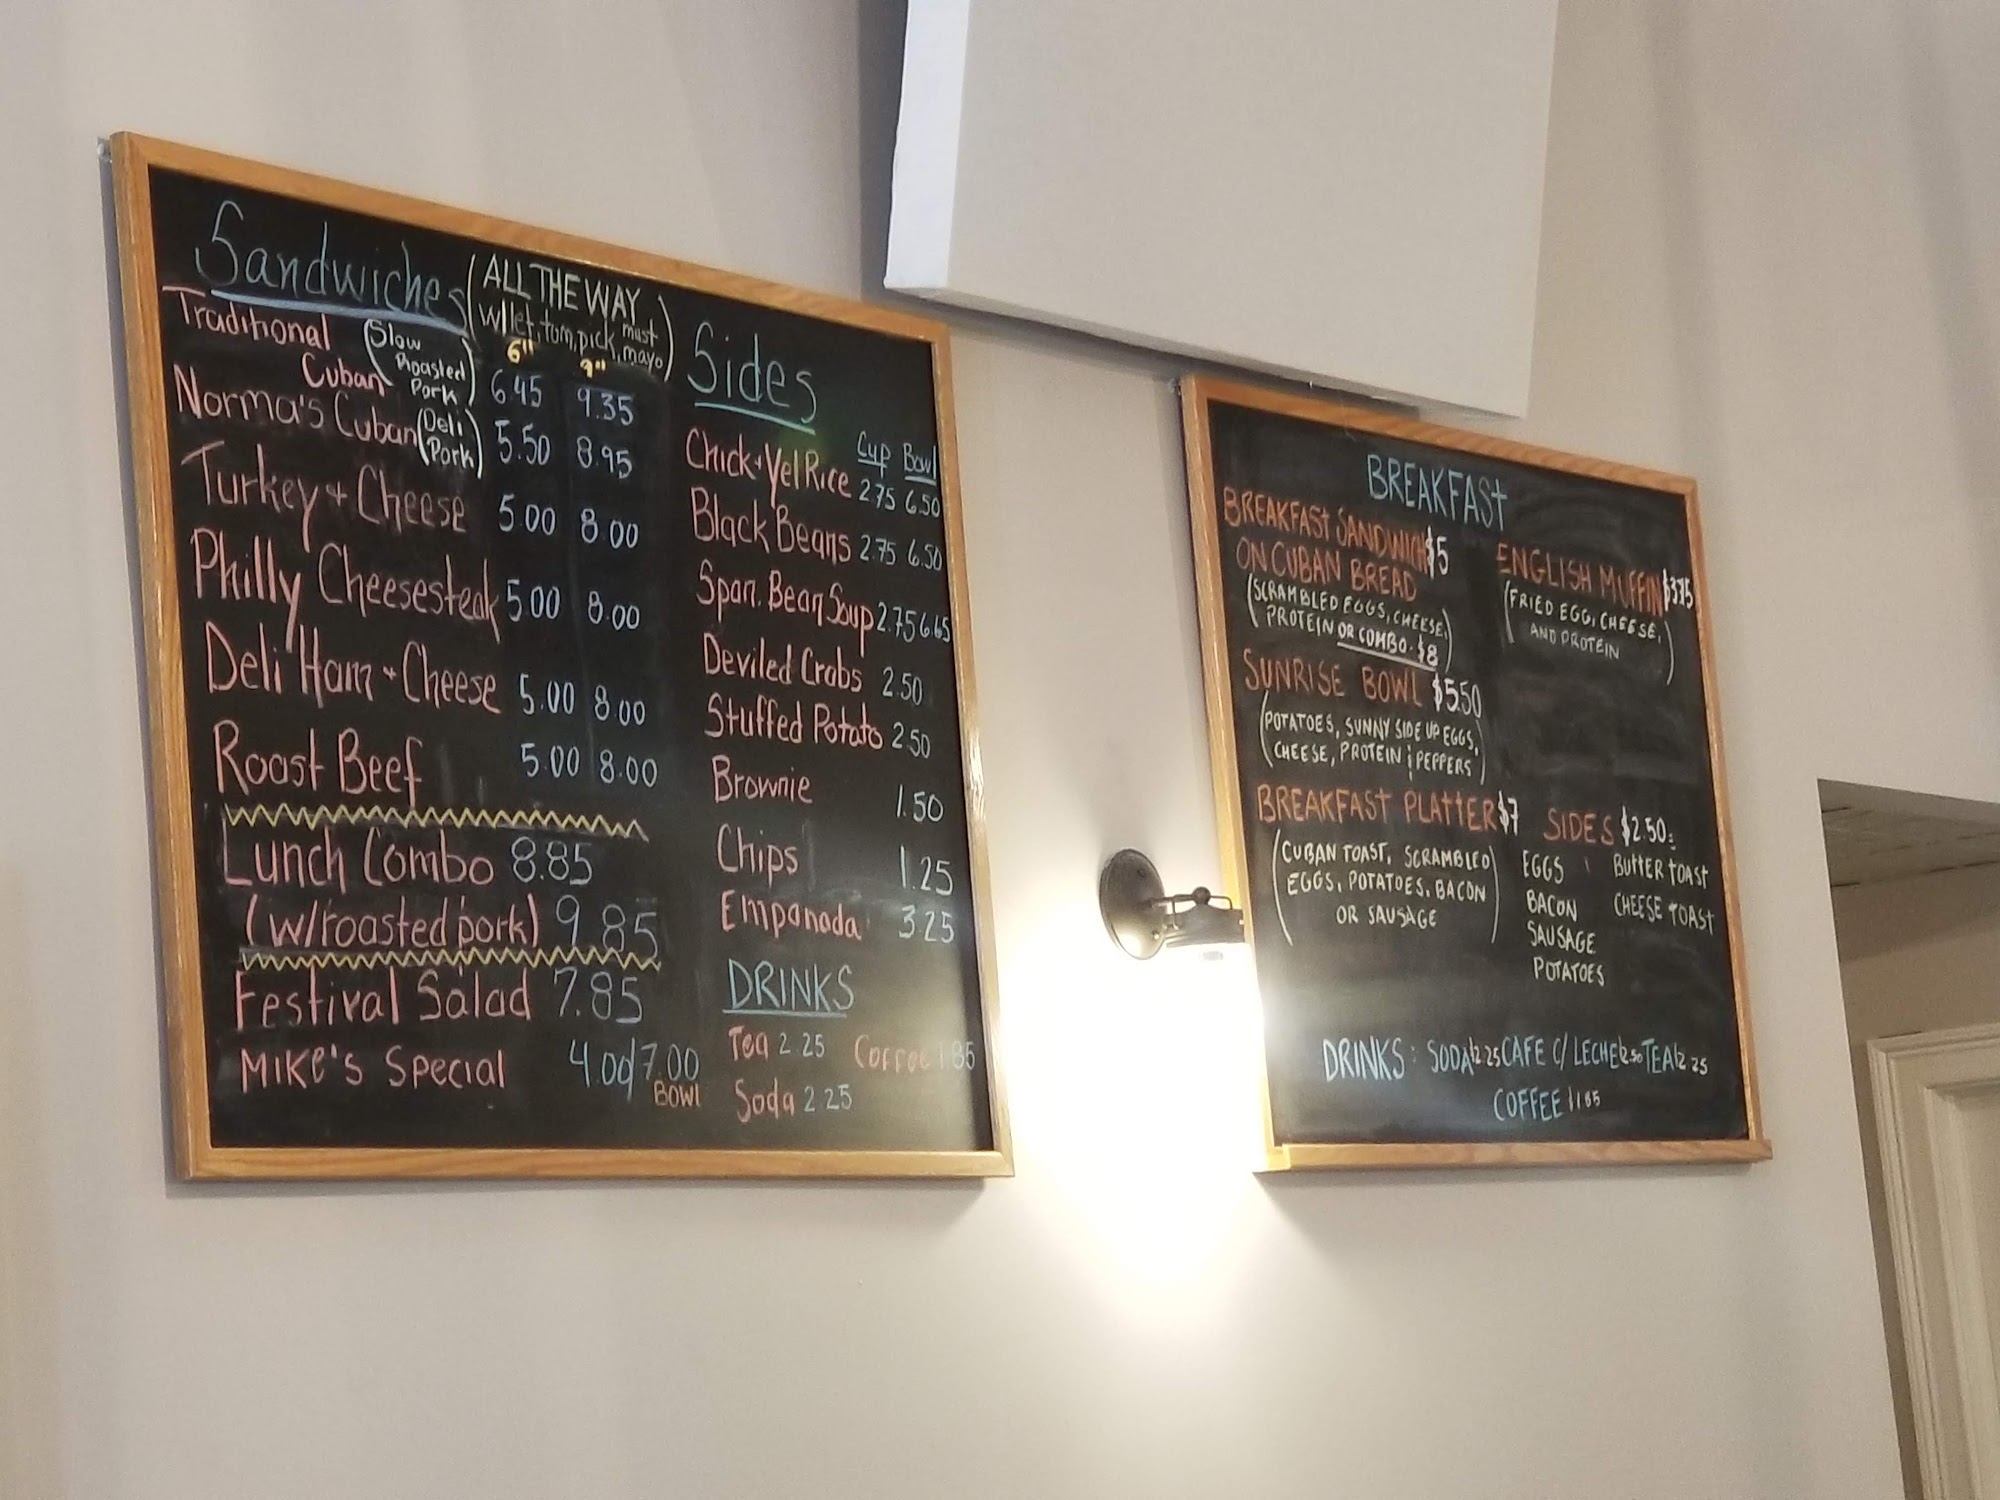 Sandwiches (ALL THE WAY
w/let, tom, pick, must, mayo)
6" 9"
Traditional Cuban (Slow Roasted Pork) 6.45 9.35
Norma's Cuban (Deli Pork) 5.50 8.95
Turkey + Cheese 5.00 8.00
Philly Cheesesteak 5.00 8.00
Deli Ham + Cheese 5.00 8.00
Roast Beef 5.00 8.00
Lunch Combo 8.85
(w/roasted pork) 9.85
Festival Salad 7.85
MIKE'S Special 4.00/7.00
BOWL
Sides
Cup Bowl
Chick + Yel Rice 2.75 6.50
Black Beans 2.75 6.50
Span. Bean Soup 2.75 6.65
Deviled Crabs 2.50
Stuffed Potato 2.50
Brownie 1.50
Chips 1.25
Empanada 3.25
DRINKS
Tea 2.25 Coffee 1.85
Soda 2.25
BREAKFAST
BREAKFAST SANDWICH $5
ON CUBAN BREAD
(SCRAMBLED EGGS, CHEESE,
PROTEIN OR COMBO - $8)
SUNRISE BOWL $5.50
(POTATOES, SUNNY SIDE UP EGGS,
CHEESE, PROTEIN ; PEPPERS)
BREAKFAST PLATTER $7
(CUBAN TOAST, SCRAMBLED
EGGS, POTATOES, BACON
OR SAUSAGE)
ENGLISH MUFFIN $3.75
(FRIED EGG, CHEESE,
AND PROTEIN)
SIDES $2.50:
EGGS BUTTER TOAST
BACON CHEESE TOAST
SAUSAGE
POTATOES
DRINKS: SODA|2.25 CAFE C/ LECHE|2.50 TEA|2.25
COFFEE|1.85